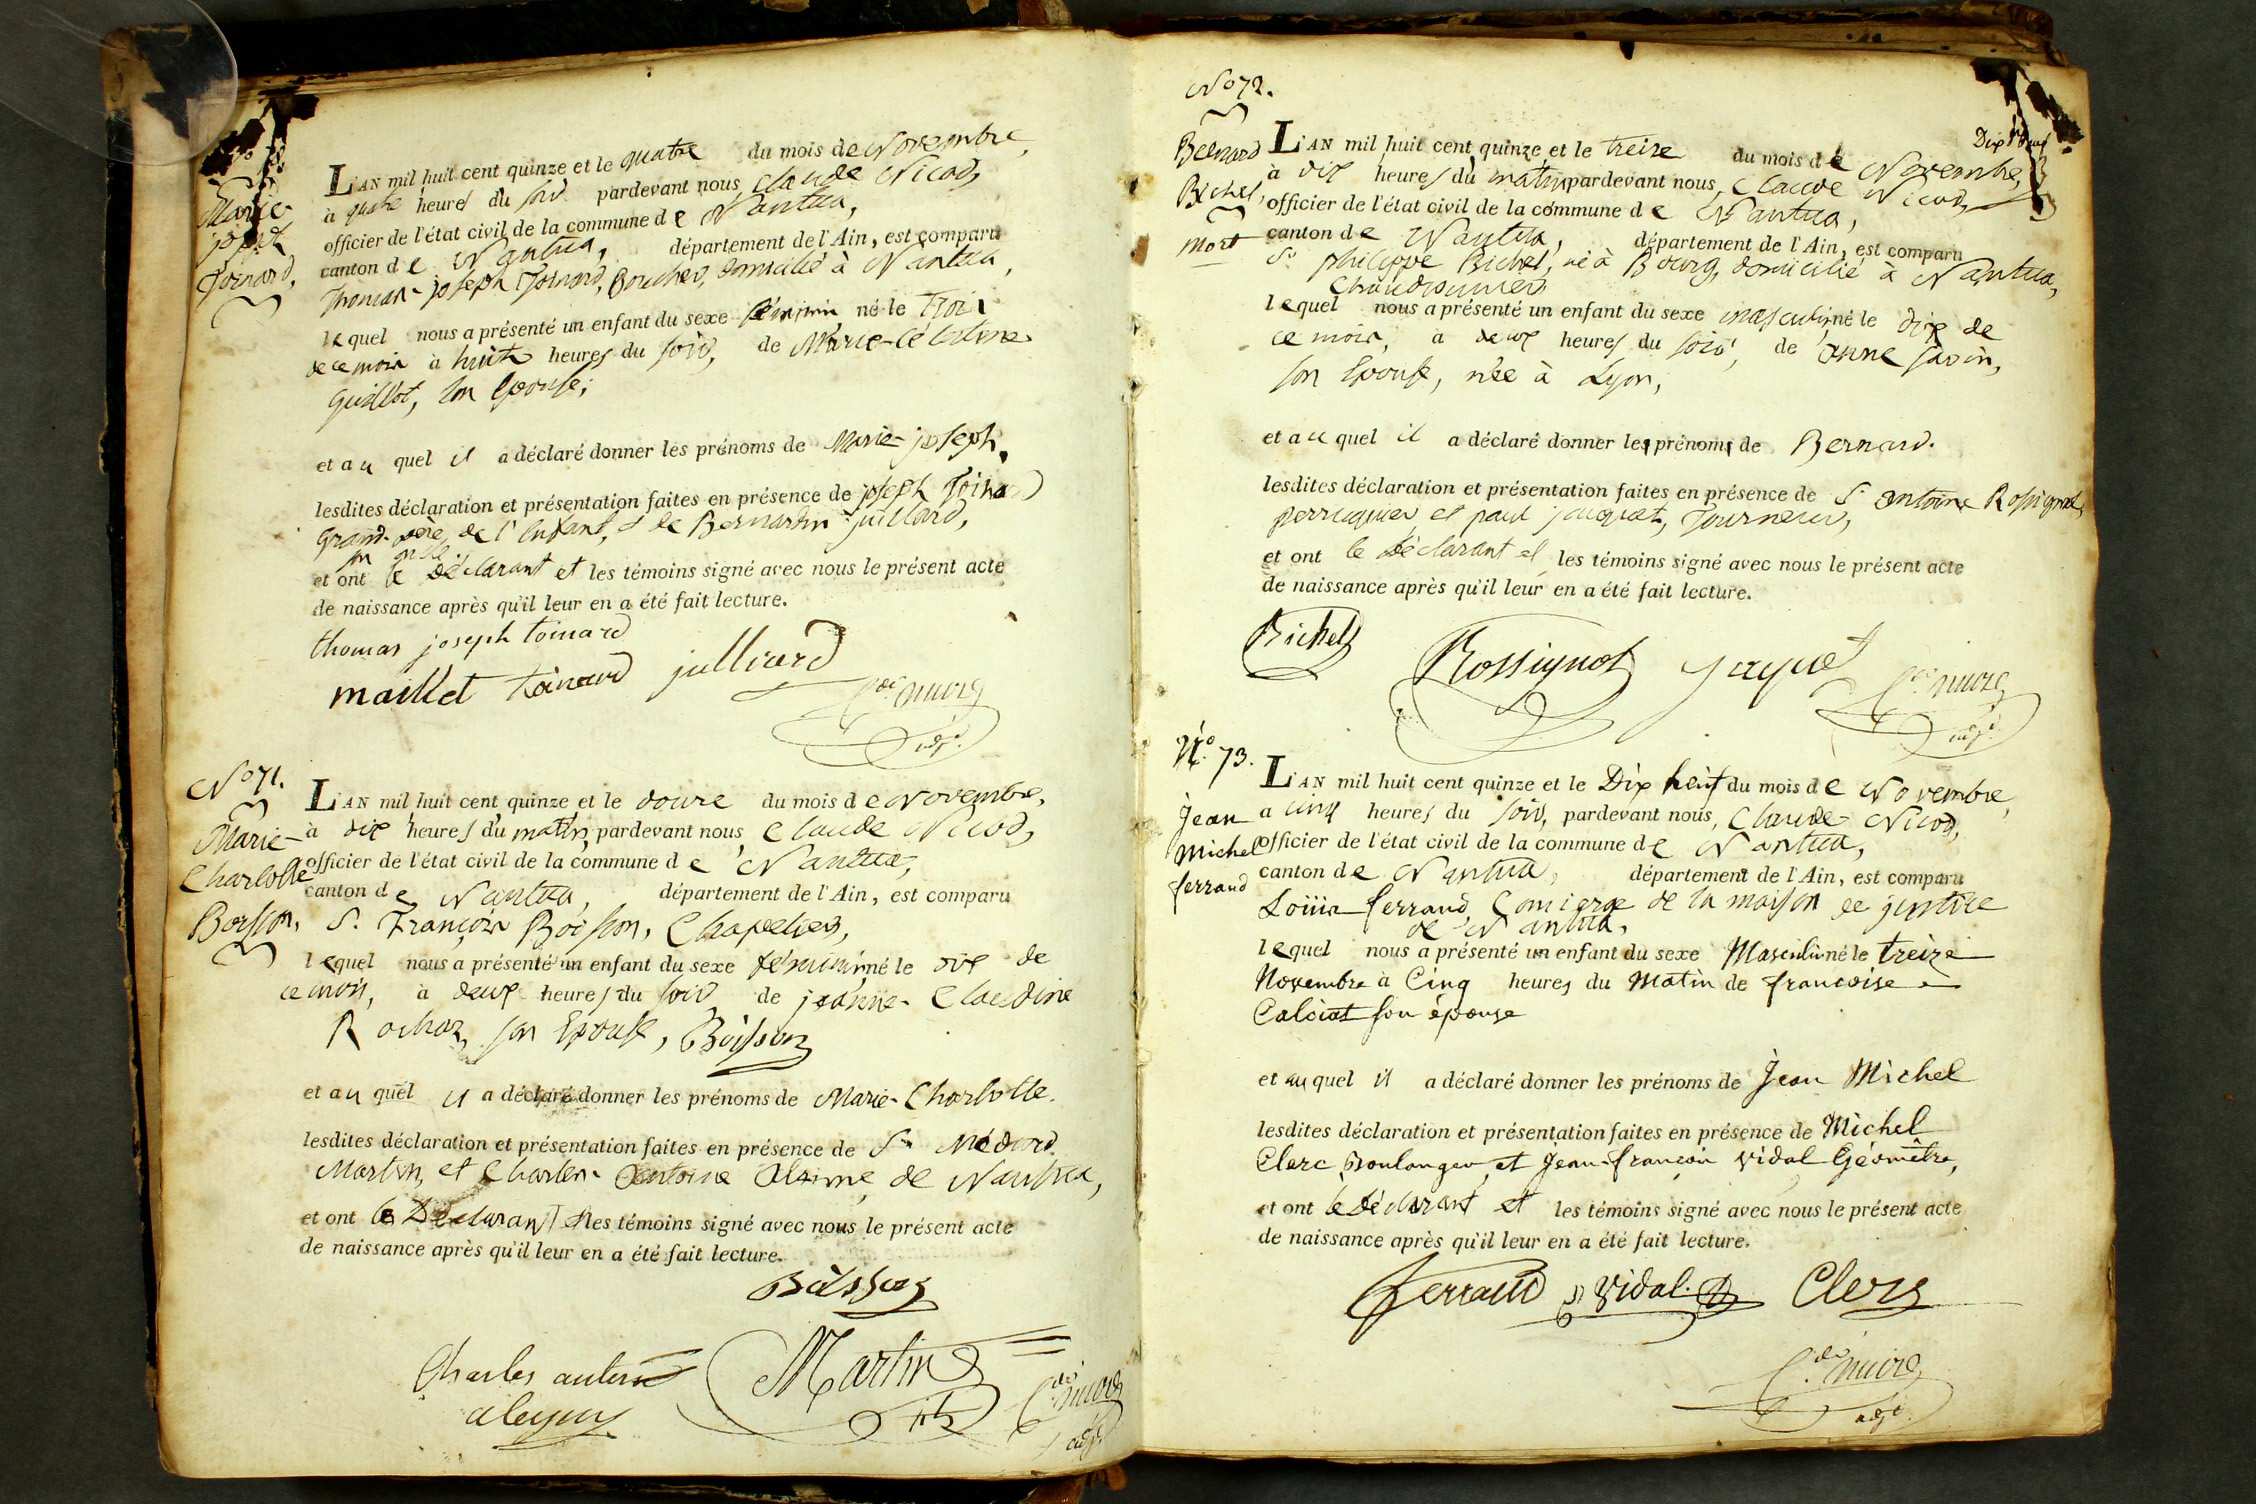 Marie-
jph
Toinard,
L'AN mil huit cent quinze et le quatre du mois de Novembre,
à quatre heures du soir pardevant nous, Claude Nicod,
officier de l'état civil de la commune de Nantua,
canton de Nantua, département de l'Ain, est comparu
Thomas-joseph Toinard, Boucher, domicilié à Nantua,
lequel nous a présenté un enfant du sexe féminin né le Trois
de ce mois à huit heures du soir, de Marie-Célestine
Guillot, son Epouse;
et au quel il a déclaré donner les prénoms de Marie-joseph.
lesdites déclaration et présentation faites en présence de joseph Toinard
Grand-père de l'Enfant, et de Bernardin juillard,
et ont le Déclarant et les témoins signé avec nous le présent acte
de naissance après qu'il leur en a été fait lecture.
thomas joseph toinard
maillet toinard julliard
Cde nicod
adjt.
No 71.
Marie-
Charlotte
Boisson,
L'AN mil huit cent quinze et le douze du mois de Novembre,
à dix heures du matin, pardevant nous, Claude Nicod,
officier de l'état civil de la commune de Nantua,
canton de Nantua, département de l'Ain, est comparu
S. François Boisson, Chapelier,
lequel nous a présenté un enfant du sexe féminin né le dix de
ce mois, à deux heures du soir de jeanne-Claudine
Rochaz, son Epouse, Boisson
et au quel il a déclaré donner les prénoms de Marie-Charlotte.
lesdites déclaration et présentation faites en présence de Sr Médard
Martin, et Charles-Antoine de Nantua,
et ont le Déclarant et les témoins signé avec nous le présent acte
de naissance après qu'il leur en a été fait lecture.
Boisson
Charles antoine Martin Cde nicod
adjt.
No 72.
Dix neuf
Bernard
Bichel,
Mort
L'AN mil huit cent quinze et le treize du mois de Novembre,
à dix heures du matin, pardevant nous, Claude Nicod,
officier de l'état civil de la commune de Nantua,
canton de Nantua, département de l'Ain, est comparu
Sr philippe Bichel, né à Bourg, domicilié à Nantua,
Chaudronnier
lequel nous a présenté un enfant du sexe masculin né le dix de
ce mois, à deux heures du soir, de Anne Savin,
son Epouse, née à Lyon,
et au quel il a déclaré donner les prénoms de Bernard.
lesdites déclaration et présentation faites en présence de S. Antoine Rossignol,
perruquier et paul jacquet, Tourneur,
et ont le Déclarant et les témoins signé avec nous le présent acte
de naissance après qu'il leur en a été fait lecture.
Bichel
Rossignol Jaquet Cde nicod
adjt.
No. 73.
Jean
Michel
ferrand
L'AN mil huit cent quinze et le Dix heuf du mois de Novembre,
à cinq heures du soir, pardevant nous, Claude Nicod,
officier de l'état civil de la commune de Nantua,
canton de Nantua, département de l'Ain, est comparu
Louis ferrand, Concierge de la maison de justice
de Nantua,
lequel nous a présenté un enfant du sexe Masculin né le treize
Novembre à Cinq heures du Matin de francoise
Calciat son épouse
et au quel il a déclaré donner les prénoms de Jean Michel
lesdites déclaration et présentation faites en présence de Michel
Clerc Boulanger, et Jean-françois Vidal Géomètre,
et ont le Déclarant et les témoins signé avec nous le présent acte
de naissance après qu'il leur en a été fait lecture.
ferrand Vidal Clerc
Cde nicod
adjt.